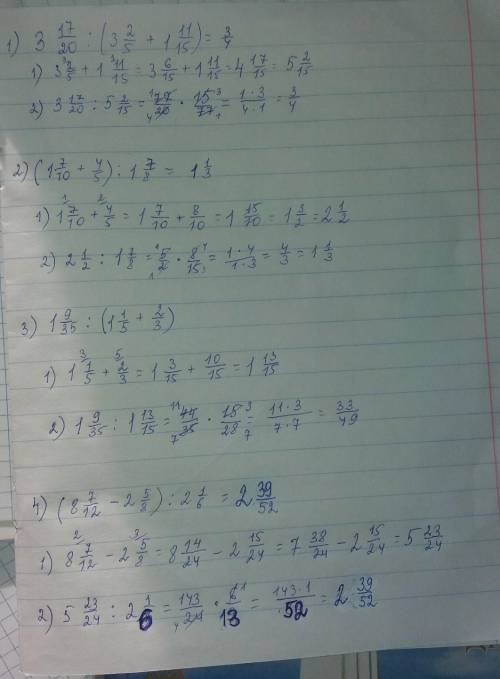 1) 3 17/20 : (3 2/5 + 1 11/15) = 3/4
1) 3 2/5 + 1 11/15 = 3 6/15 + 1 11/15 = 4 17/15 = 5 2/15
2) 3 17/20 : 5 2/15 = 77/20 · 15/77 = 1·3/4·1 = 3/4
2) (1 7/10 + 4/5) : 1 7/8 = 1 1/3
1) 1 7/10 + 4/5 = 1 7/10 + 8/10 = 1 15/10 = 1 3/2 = 2 1/2
2) 2 1/2 : 1 7/8 = 5/2 · 8/15 = 1·4/1·3 = 4/3 = 1 1/3
3) 1 9/35 : (1 1/5 + 2/3)
1) 1 1/5 + 2/3 = 1 3/15 + 10/15 = 1 13/15
2) 1 9/35 : 1 13/15 = 44/35 · 15/28 = 11·3/7·7 = 33/49
4) (8 7/12 - 2 5/8) : 2 1/6 = 2 39/52
1) 8 7/12 - 2 5/8 = 8 14/24 - 2 15/24 = 7 38/24 - 2 15/24 = 5 23/24
2) 5 23/24 : 2 1/6 = 143/24 · 6/13 = 143·1/52 = 2 39/52